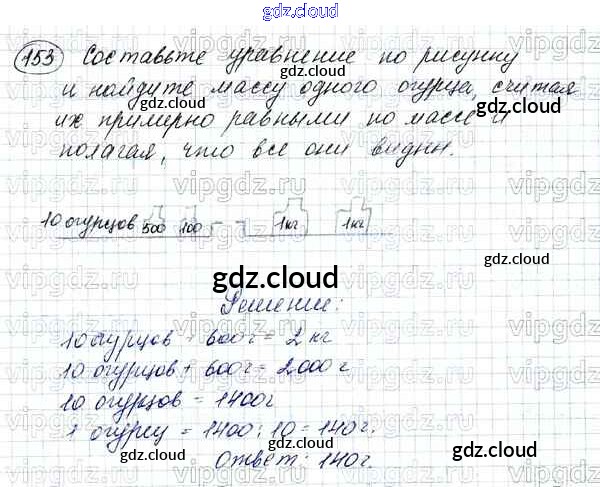 gdz.cloud
gdz.cloud
153 Составьте уравнение по рисунку
и найдите массу одного огурца, считая
их примерно равными по массе и
полагая, что все они видны.
10 огурцов 500 100 1кг 1кг
gdz.cloud
Решение:
10 огурцов + 600г = 2 кг
10 огурцов + 600г = 2000г
10 огурцов = 1400г
1 огурец = 1400 : 10 = 140г.
Ответ: 140г.
gdz.cloud
gdz.cloud
gdz.cloud
gdz.cloud